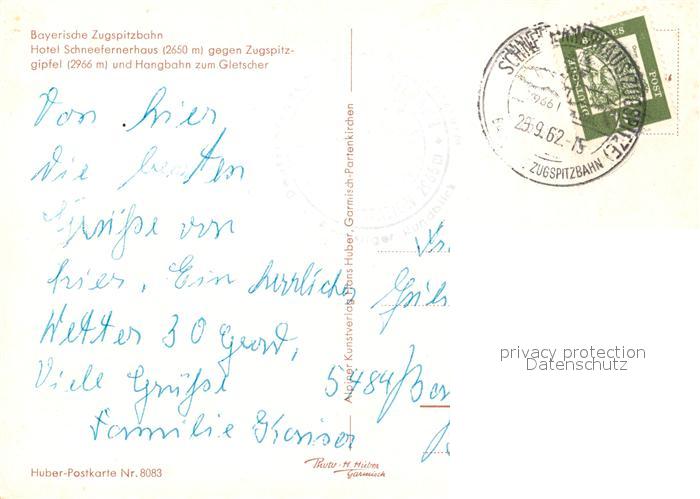 Bayerische Zugspitzbahn
Hotel Schneefernerhaus (2650 m) gegen Zugspitz-
gipfel (2966 m) und Hangbahn zum Gletscher
Von hier
die besten
Grüße von
hier. Ein herrliches
Wetter 30 Grad,
Viele Grüße
Familie Kaiser
Huber-Postkarte Nr. 8083
Alpiner Kunstverlag Hans Huber, Garmisch-Partenkirchen
Photo-H. Huber
Garmisch
DEUTSCHE
POST
SCHNEEFERNERHAUS (ZUGSPITZE)
29.9.62.-15
ZUGSPITZBAHN
Fr.
5484
privacy protection
Datenschutz